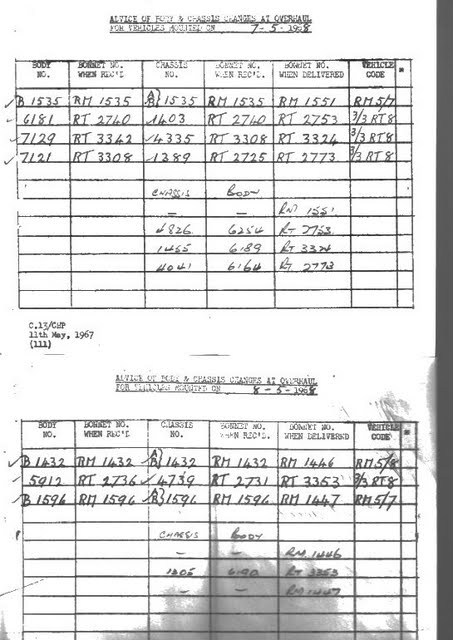 ADVICE OF BODY & CHASSIS CHANGES AT OVERHAUL
FOR VEHICLES MOUNTED ON 7-5-1968
BODY NO. BONNET NO. WHEN REC'D. CHASSIS NO. BONNET NO. WHEN REC'D. BONNET NO. WHEN DELIVERED VEHICLE CODE
✓ B 1535 RM 1535 ✓ B} 1535 RM 1535 RM 1551 RM 5/7
✓ 6181 RT 2740 ✓ 1403 RT 2740 RT 2753 3/3 RT 8
✓ 7129 RT 3342 ✓ 4335 RT 3308 RT 3324 3/3 RT 8
✓ 7121 RT 3308 ✓ 1389 RT 2725 RT 2773 3/3 RT 8
CHASSIS BODY
— — RM 1551
4826 6254 RT 2753
1455 6189 RT 3324
4041 6164 RT 2773
C.13/CHP
11th May, 1967
(111)
ADVICE OF BODY & CHASSIS CHANGES AT OVERHAUL
FOR VEHICLES MOUNTED ON 8-5-1968
BODY NO. BONNET NO. WHEN REC'D. CHASSIS NO. BONNET NO. WHEN REC'D. BONNET NO. WHEN DELIVERED VEHICLE CODE
✓ B 1432 RM 1432 ✓ B} 1432 RM 1432 RM 1446 RM 5/8
✓ 5912 RT 2736 ✓ 4739 RT 2731 RT 3353 3/3 RT 8
✓ B 1596 RM 1596 ✓ B} 1596 RM 1596 RM 1447 RM 5/7
CHASSIS BODY
— — RM 1446
1205 6190 RT 3353
— — RM 1447